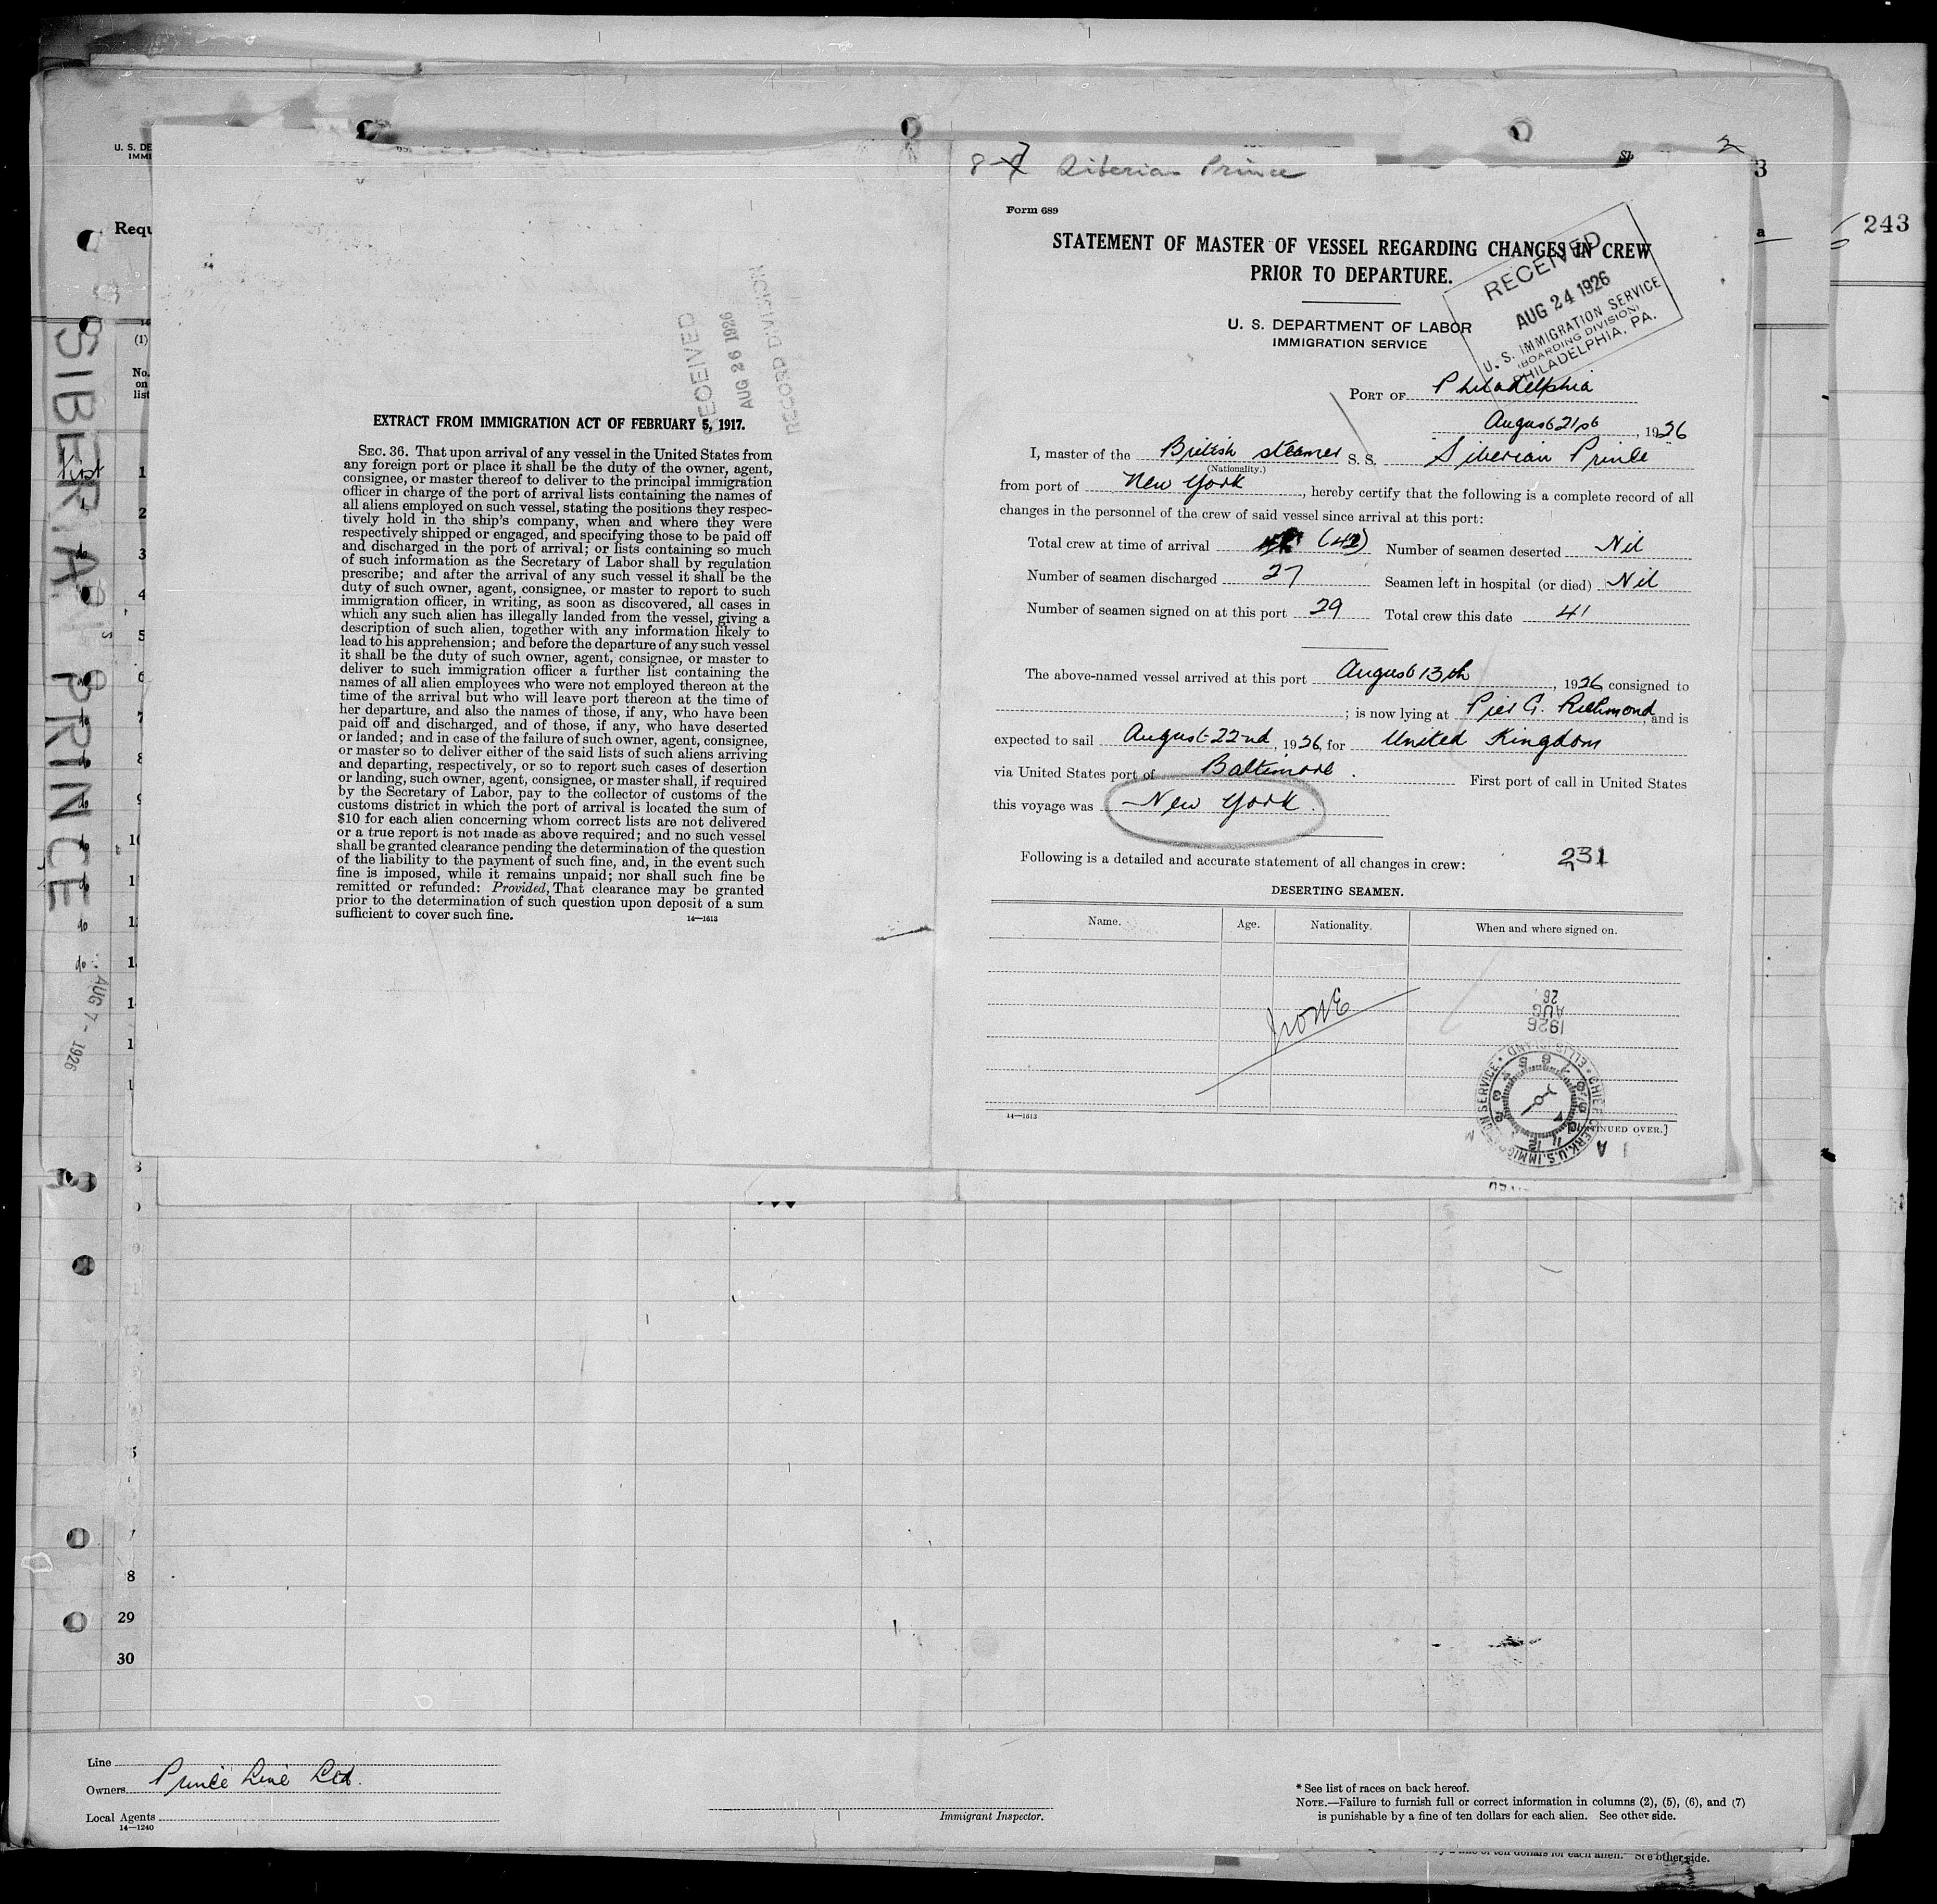 8-7 Siberian Prince
2
3
243
a
U. S. DE
IMMI
Requ
(1)
No.
on
list
SIBERIAN PRINCE
AUG 7 - 1926
first
1
2
3
4
5
6
7
8
9
RECEIVED
AUG 26 1926
RECORD DIVISION
EXTRACT FROM IMMIGRATION ACT OF FEBRUARY 5, 1917.
SEC. 36. That upon arrival of any vessel in the United States from
any foreign port or place it shall be the duty of the owner, agent,
consignee, or master thereof to deliver to the principal immigration
officer in charge of the port of arrival lists containing the names of
all aliens employed on such vessel, stating the positions they respec-
tively hold in the ship's company, when and where they were
respectively shipped or engaged, and specifying those to be paid off
and discharged in the port of arrival; or lists containing so much
of such information as the Secretary of Labor shall by regulation
prescribe; and after the arrival of any such vessel it shall be the
duty of such owner, agent, consignee, or master to report to such
immigration officer, in writing, as soon as discovered, all cases in
which any such alien has illegally landed from the vessel, giving a
description of such alien, together with any information likely to
lead to his apprehension; and before the departure of any such vessel
it shall be the duty of such owner, agent, consignee, or master to
deliver to such immigration officer a further list containing the
names of all alien employees who were not employed thereon at the
time of the arrival but who will leave port thereon at the time of
her departure, and also the names of those, if any, who have been
paid off and discharged, and of those, if any, who have deserted
or landed; and in case of the failure of such owner, agent, consignee,
or master so to deliver either of the said lists of such aliens arriving
and departing, respectively, or so to report such cases of desertion
or landing, such owner, agent, consignee, or master shall, if required
by the Secretary of Labor, pay to the collector of customs of the
customs district in which the port of arrival is located the sum of
$10 for each alien concerning whom correct lists are not delivered
or a true report is not made as above required; and no such vessel
shall be granted clearance pending the determination of the question
of the liability to the payment of such fine, and, in the event such
fine is imposed, while it remains unpaid; nor shall such fine be
remitted or refunded: Provided, That clearance may be granted
prior to the determination of such question upon deposit of a sum
sufficient to cover such fine.
14—1613
Form 689
STATEMENT OF MASTER OF VESSEL REGARDING CHANGES IN CREW
PRIOR TO DEPARTURE.
RECEIVED
AUG 24 1926
U. S. IMMIGRATION SERVICE
(BOARDING DIVISION)
PHILADELPHIA, PA.
U. S. DEPARTMENT OF LABOR
IMMIGRATION SERVICE
PORT OF Philadelphia
August 21st, 1926
I, master of the British steamer S. S. Siberian Prince
(Nationality.)
from port of New York, hereby certify that the following is a complete record of all
changes in the personnel of the crew of said vessel since arrival at this port:
Total crew at time of arrival (42) Number of seamen deserted Nil
Number of seamen discharged 27 Seamen left in hospital (or died) Nil
Number of seamen signed on at this port 29 Total crew this date 41
The above-named vessel arrived at this port August 13th, 1926, consigned to
; is now lying at Pier G. Richmond and is
expected to sail August 22nd, 1926, for United Kingdom
via United States port of Baltimore. First port of call in United States
this voyage was New York.
Following is a detailed and accurate statement of all changes in crew: 231
DESERTING SEAMEN.
Name. Age. Nationality. When and where signed on.
NONE
1926
AUG
26
CHIEF CLERK, U.S. IMMIGRATION SERVICE • ELLIS ISLAND •
14—1613
[CONTINUED OVER.]
8
29
30
Line
Owners Prince Line Ltd.
Local Agents
14—1240
Immigrant Inspector.
* See list of races on back hereof.
NOTE.—Failure to furnish full or correct information in columns (2), (5), (6), and (7)
is punishable by a fine of ten dollars for each alien. See other side.
See other side.